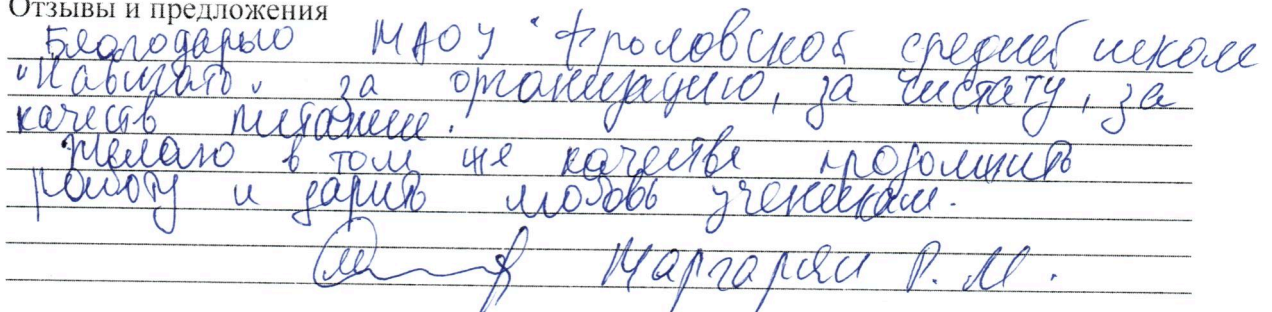 Отзывы и предложения
Благодарью МАОУ "Фроловской средней школе
"Навигато" за организацию, за чистату, за
качеств питание.
Желаю в том же качестве продолжить
работу и дарить любовь ученикам.
Маргарян Р. М.